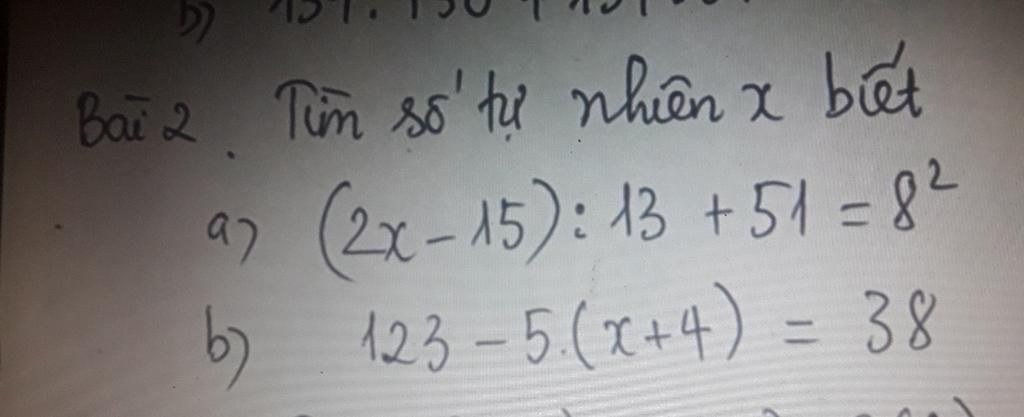 b)
Bài 2. Tìm số tự nhiên x biết
a) (2x - 15) : 13 + 51 = 8²
b) 123 - 5.(x+4) = 38